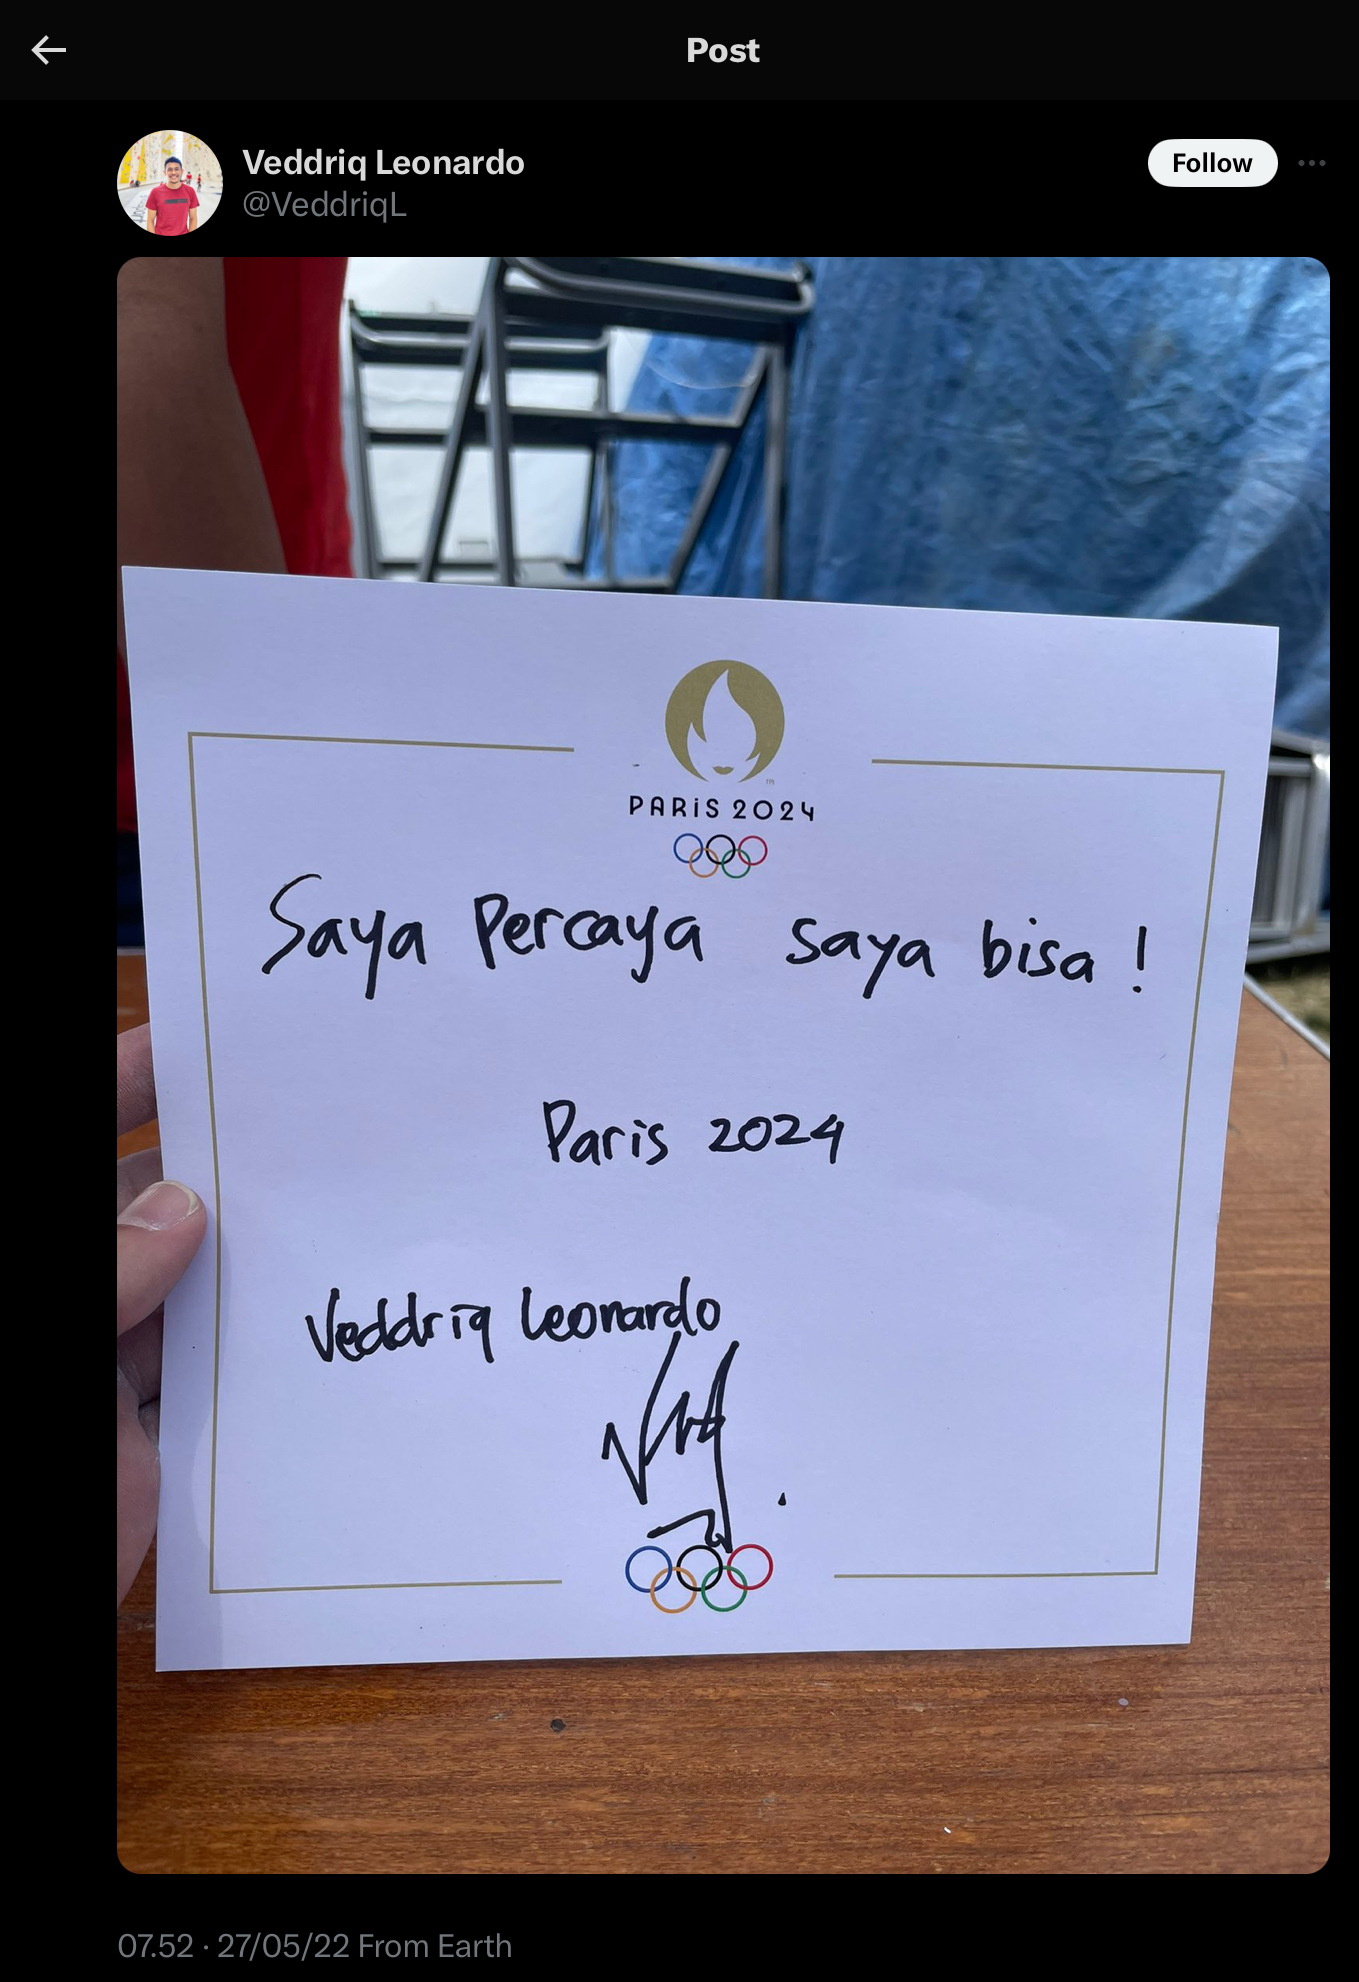 Post
Veddriq Leonardo
@VeddriqL
Follow
PARiS 2024
Saya Percaya saya bisa !
Paris 2024
Veddriq Leonardo
07.52 · 27/05/22 From Earth